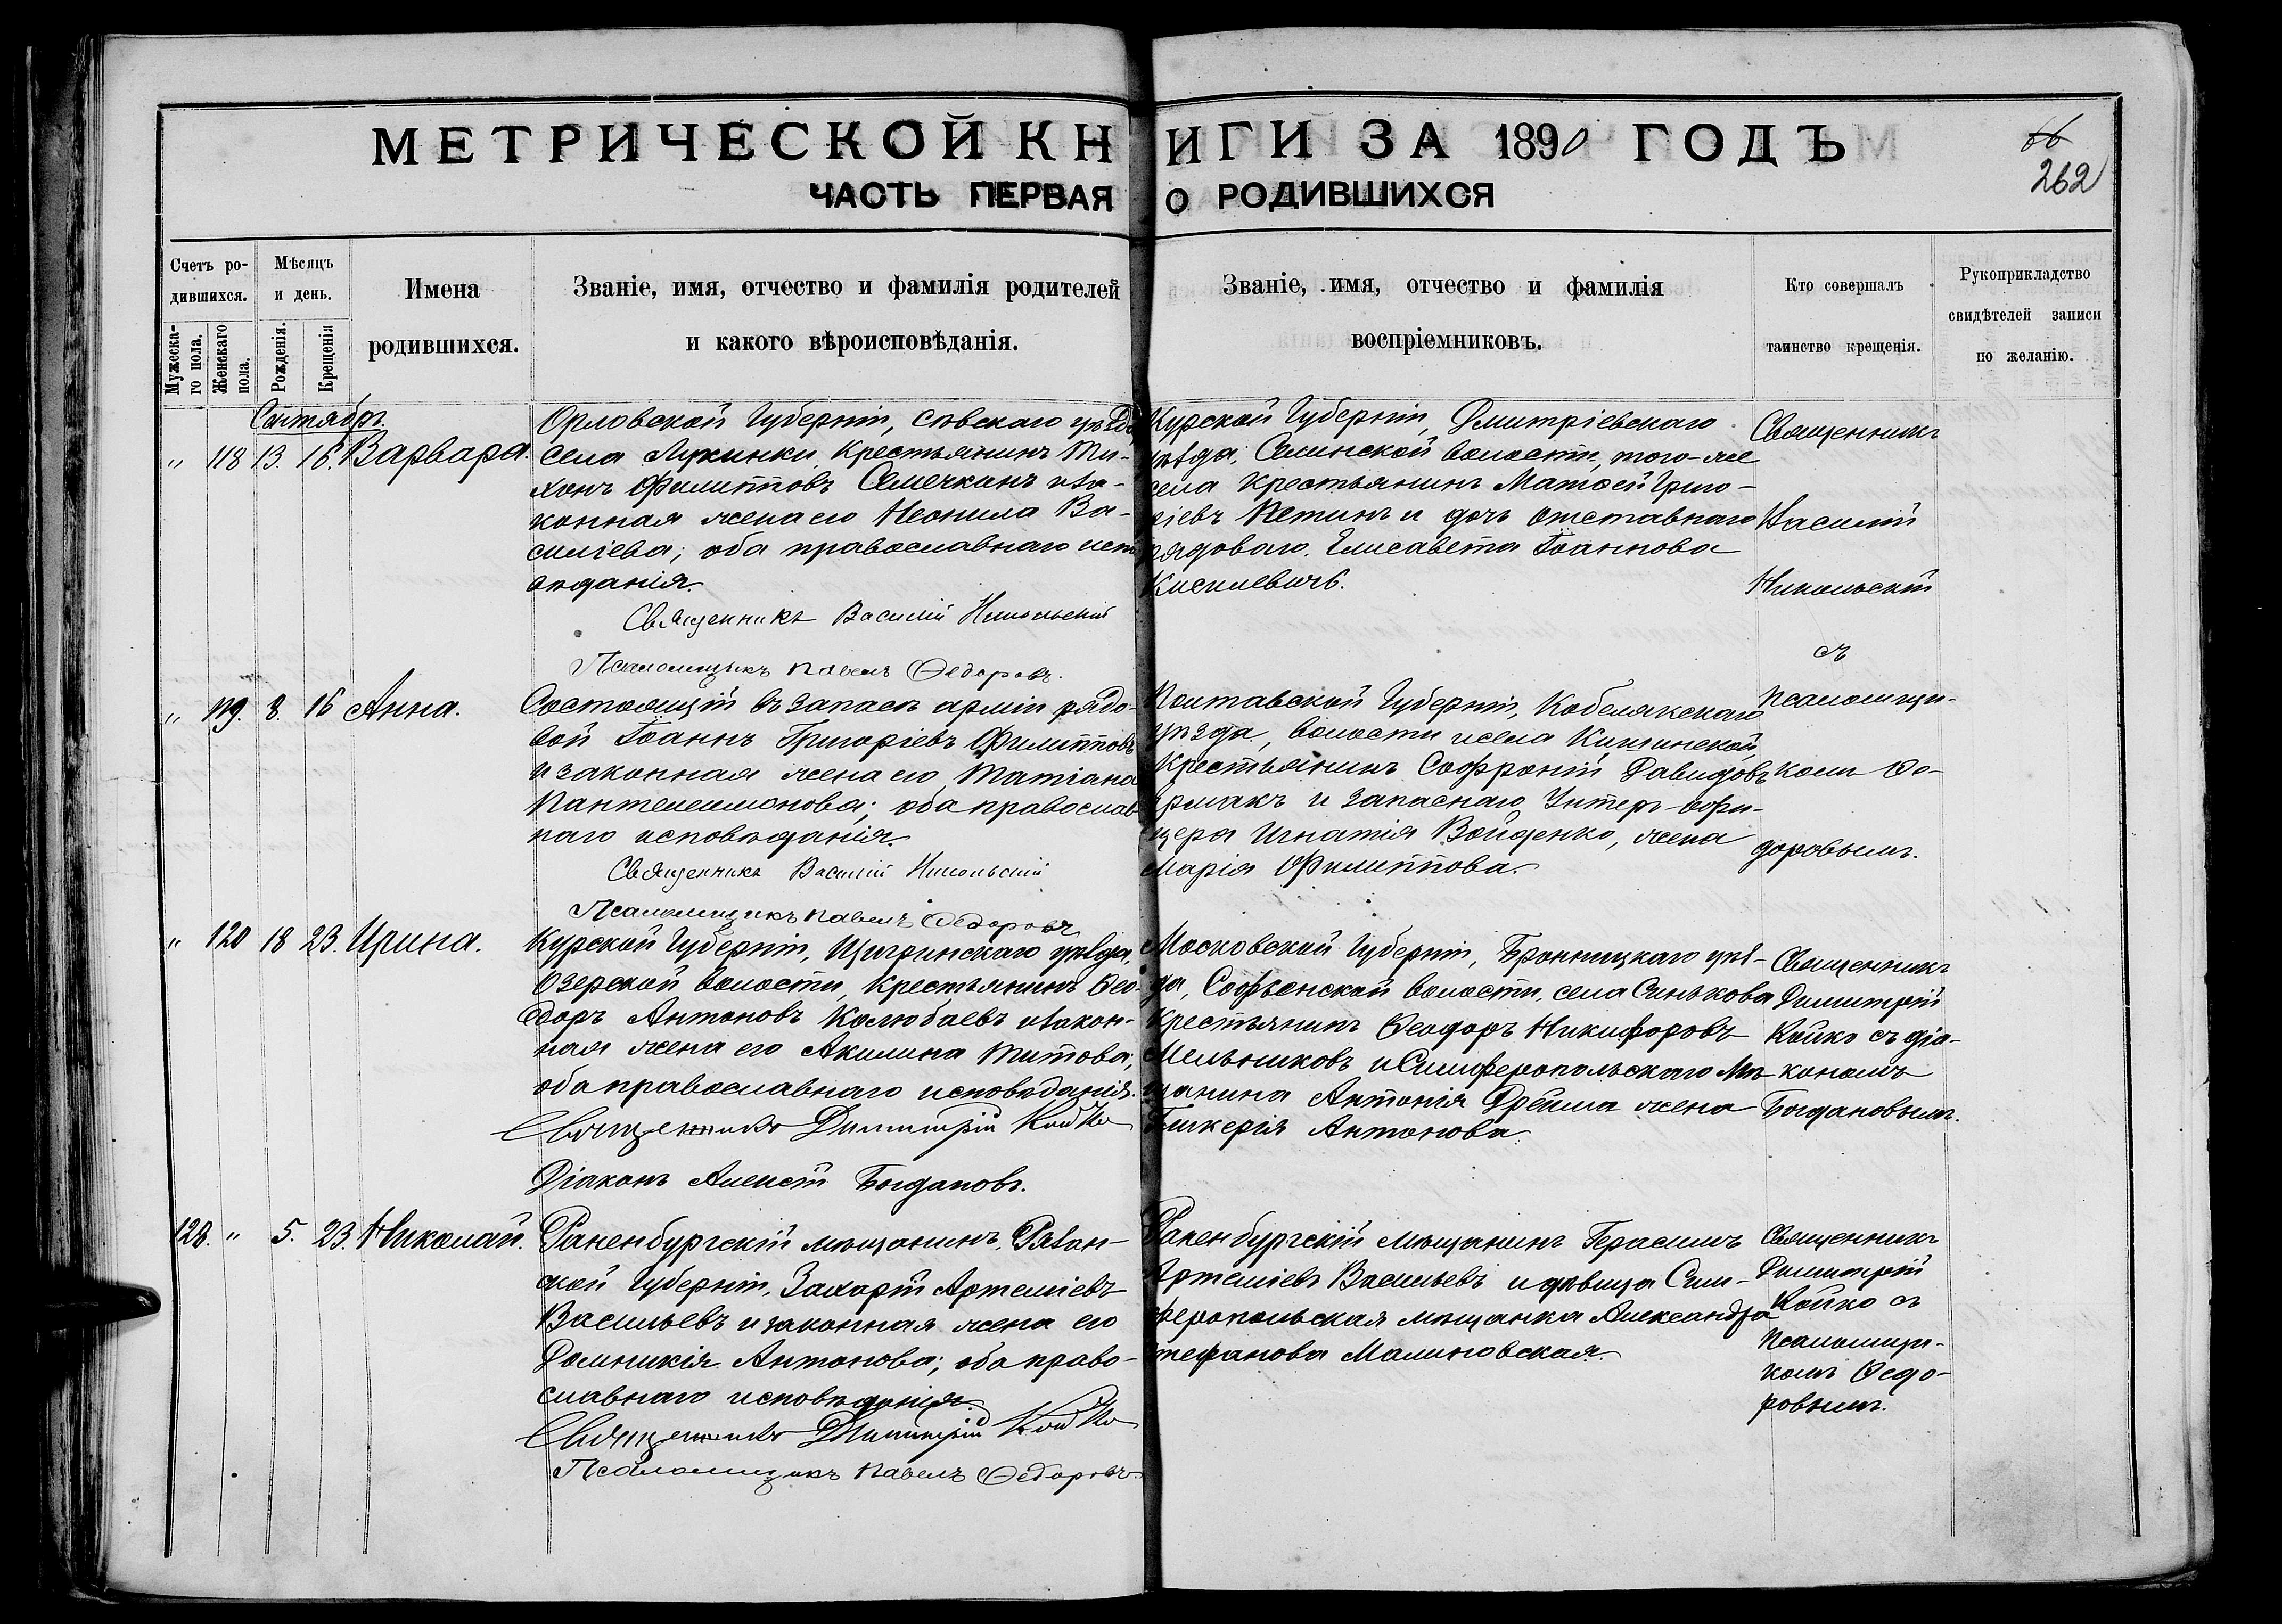 МЕТРИЧЕСКОЙ КНИГИ ЗА 1890 ГОДЪ
66
262
ЧАСТЬ ПЕРВАЯ О РОДИВШИХСЯ
Счетъ ро-
дившихся.
Мужеска-
го пола.
Женскаго
пола.
Мѣсяцъ
и день.
Рожденія.
Крещенія
Имена
родившихся.
Званіе, имя, отчество и фамилія родителей
и какого вѣроисповѣданія.
Званіе, имя, отчество и фамилія
воспріемниковъ.
Кто совершалъ
таинство крещенія.
Рукоприкладство
свидѣтелей записи
по желанію.
Сентябрь.
„ 118 13. 16. Варвара.
Орловской Губерніи, Сѣвскаго уѣзда
села Лукинки, Крестьянинъ Ти-
хонъ Филипповъ Семечкинъ и за-
конная жена его Неонила Ва-
силіева; оба православнаго испо
вѣданія.
Священникъ Василій Никольскій
Псаломщикъ Павелъ Ѳедоровъ.
Курской Губерніи, Дмитріевскаго
уѣзда, Селинской волости, того-же
села Крестьянинъ Матѳей Григо-
ріевъ Петинъ и дочь отставнаго
рядоваго, Елисавета Іоаннова
Кисилевичъ.
Священникъ
Василій
Никольскій
съ
псаломщи-
комъ Ѳе-
доровымъ.
„ 119. 8. 16 Анна.
Состоящій въ запасѣ арміи рядо-
вой Іоаннъ Григоріевъ Филипповъ
и законная жена его, Татіана
Пантелеимонова; оба православ
наго исповѣданія.
Священникъ Василій Никольскій
Псаломщикъ Павелъ Ѳедоровъ
Полтавской Губерніи, Кобелякскаго
уѣзда, волости и села Кишинской,
Крестьянинъ Софроній Давидовъ
Ермакъ и запаснаго Унтеръ-офи-
цера Игнатія Войденко, жена
Марія Филиппова.
„ 120 18 23. Ирина.
Курской Губерніи, Щигринскаго уѣзда,
Озерской волости, Крестьянинъ Ѳео-
доръ Антоновъ Колюбаевъ и закон-
ная жена его Акилина Титова;
оба православнаго исповѣданія.
Священникъ Димитрій Койко
Діаконъ Алексій Богдановъ.
Московской Губерніи, Бронницкаго уѣз-
да, Софьенской волости, села Синькова
Крестьянинъ Ѳеодоръ Никифоровъ
Мельниковъ и Симферопольскаго Мѣ-
щанина Антонія Дрейша жена
Гликерія Антонова.
Священникъ
Димитрій
Койко съ діа-
кономъ
Богдановымъ.
128. „ 5. 23. Николай.
Раненбургскій мѣщанинъ, Рязан-
ской Губерніи, Захарій Артеміевъ
Васильевъ и законная жена его
Домникія Антонова; оба право-
славнаго исповѣданія.
Священникъ Димитрій Койко
Псаломщикъ Павелъ Ѳедоровъ
Раненбургскій мѣщанинъ Герасимъ
Артеміевъ Васильевъ и дѣвица Сим-
феропольская мѣщанка Александра
Стефанова Малиновская.
Священникъ
Димитрій
Койко съ
псаломщи-
комъ Ѳедо-
ровымъ.